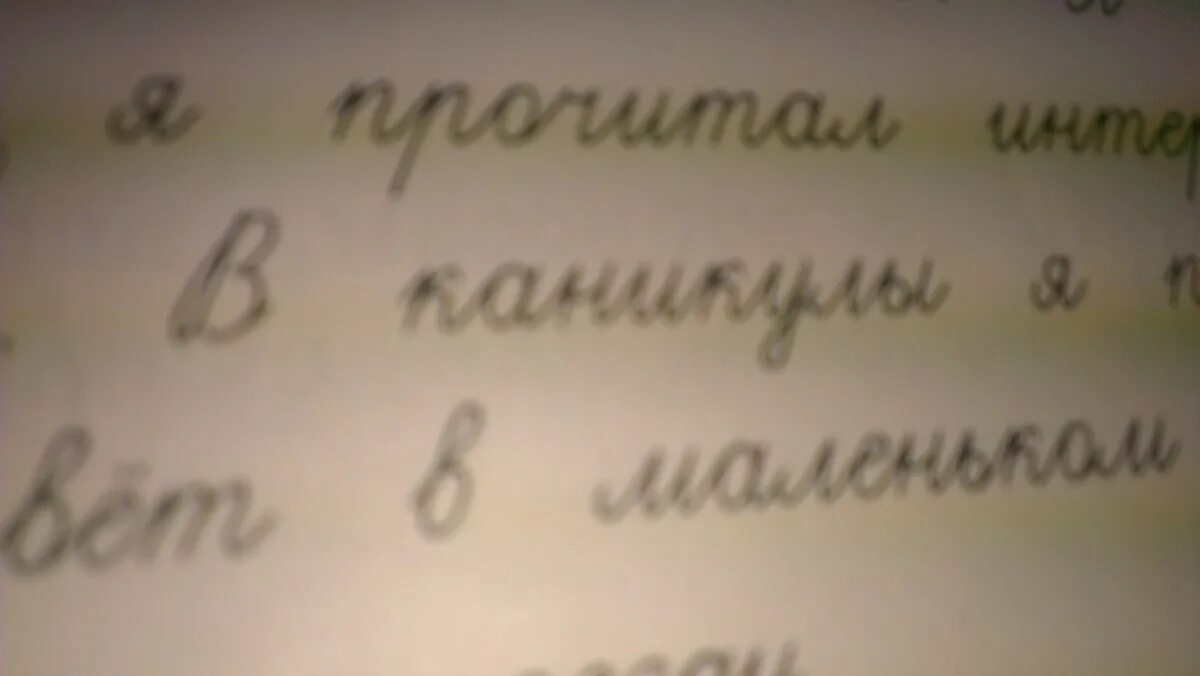 я прочитал интер
В каникулы я п
вёт в маленьком